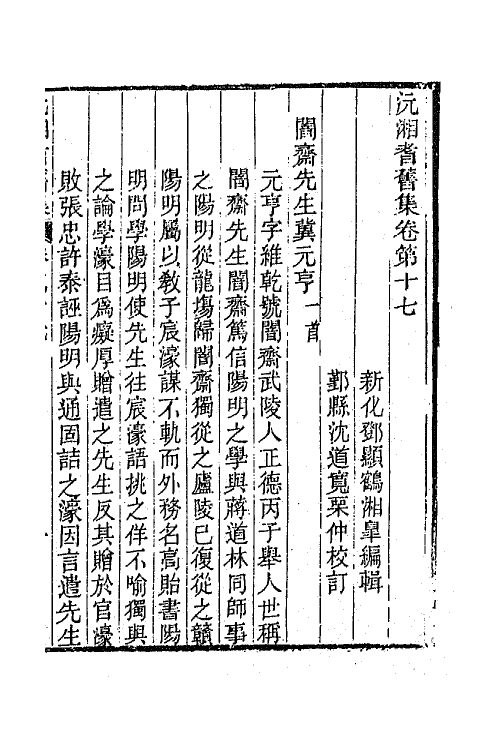 沅湘耆舊集卷第十七
新化鄧顯鶴湘皐編輯
鄞縣沈道寬栗仲校訂
闇齋先生冀元亨一首
元亨字維乾號闇齋武陵人正德丙子舉人世稱
闇齋先生闇齋篤信陽明之學與蔣道林同師事
之陽明從龍塲歸闇齋獨從之廬陵已復從之贛
陽明屬以教子宸濠謀不軌而外務名高貽書陽
明問學陽明使先生往宸濠語挑之佯不喻獨與
之論學濠目爲癡厚贈遣之先生反其贈於官濠
敗張忠許泰誣陽明與通固詰之濠因言遣先生